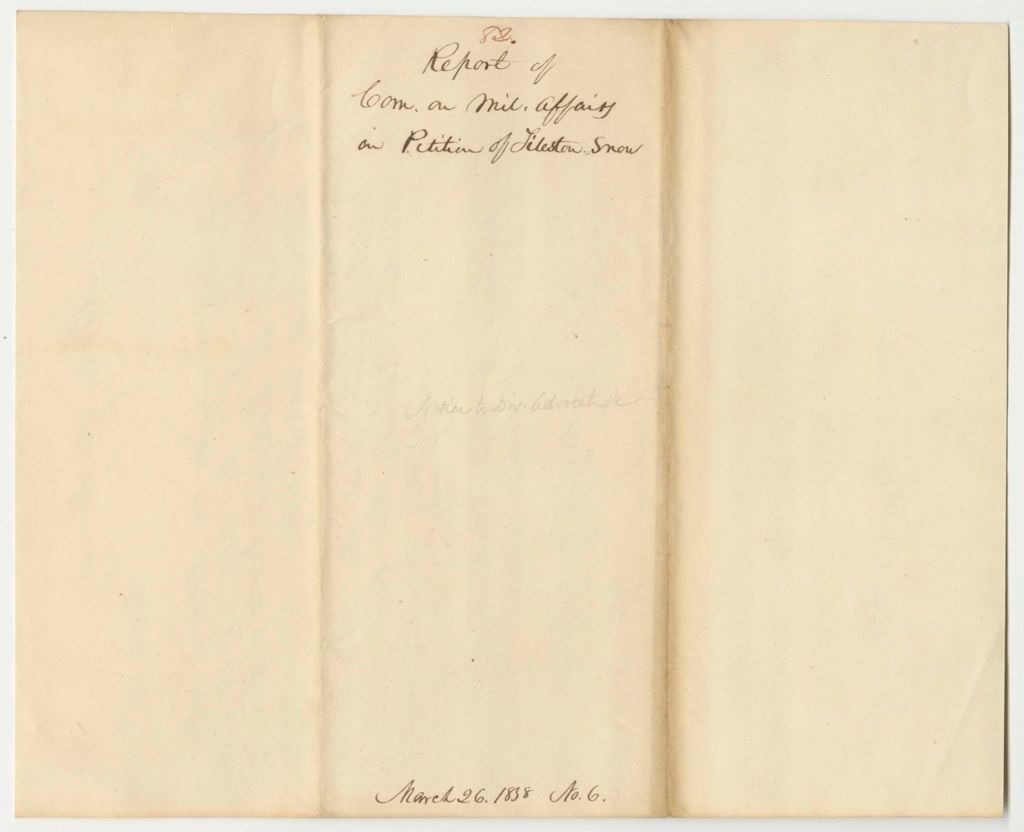 82.
Report of
Com. on Mil. Affairs
on Petition of Tileston Snow
Notice to Div. Advocate
March 26. 1838 No. 6.